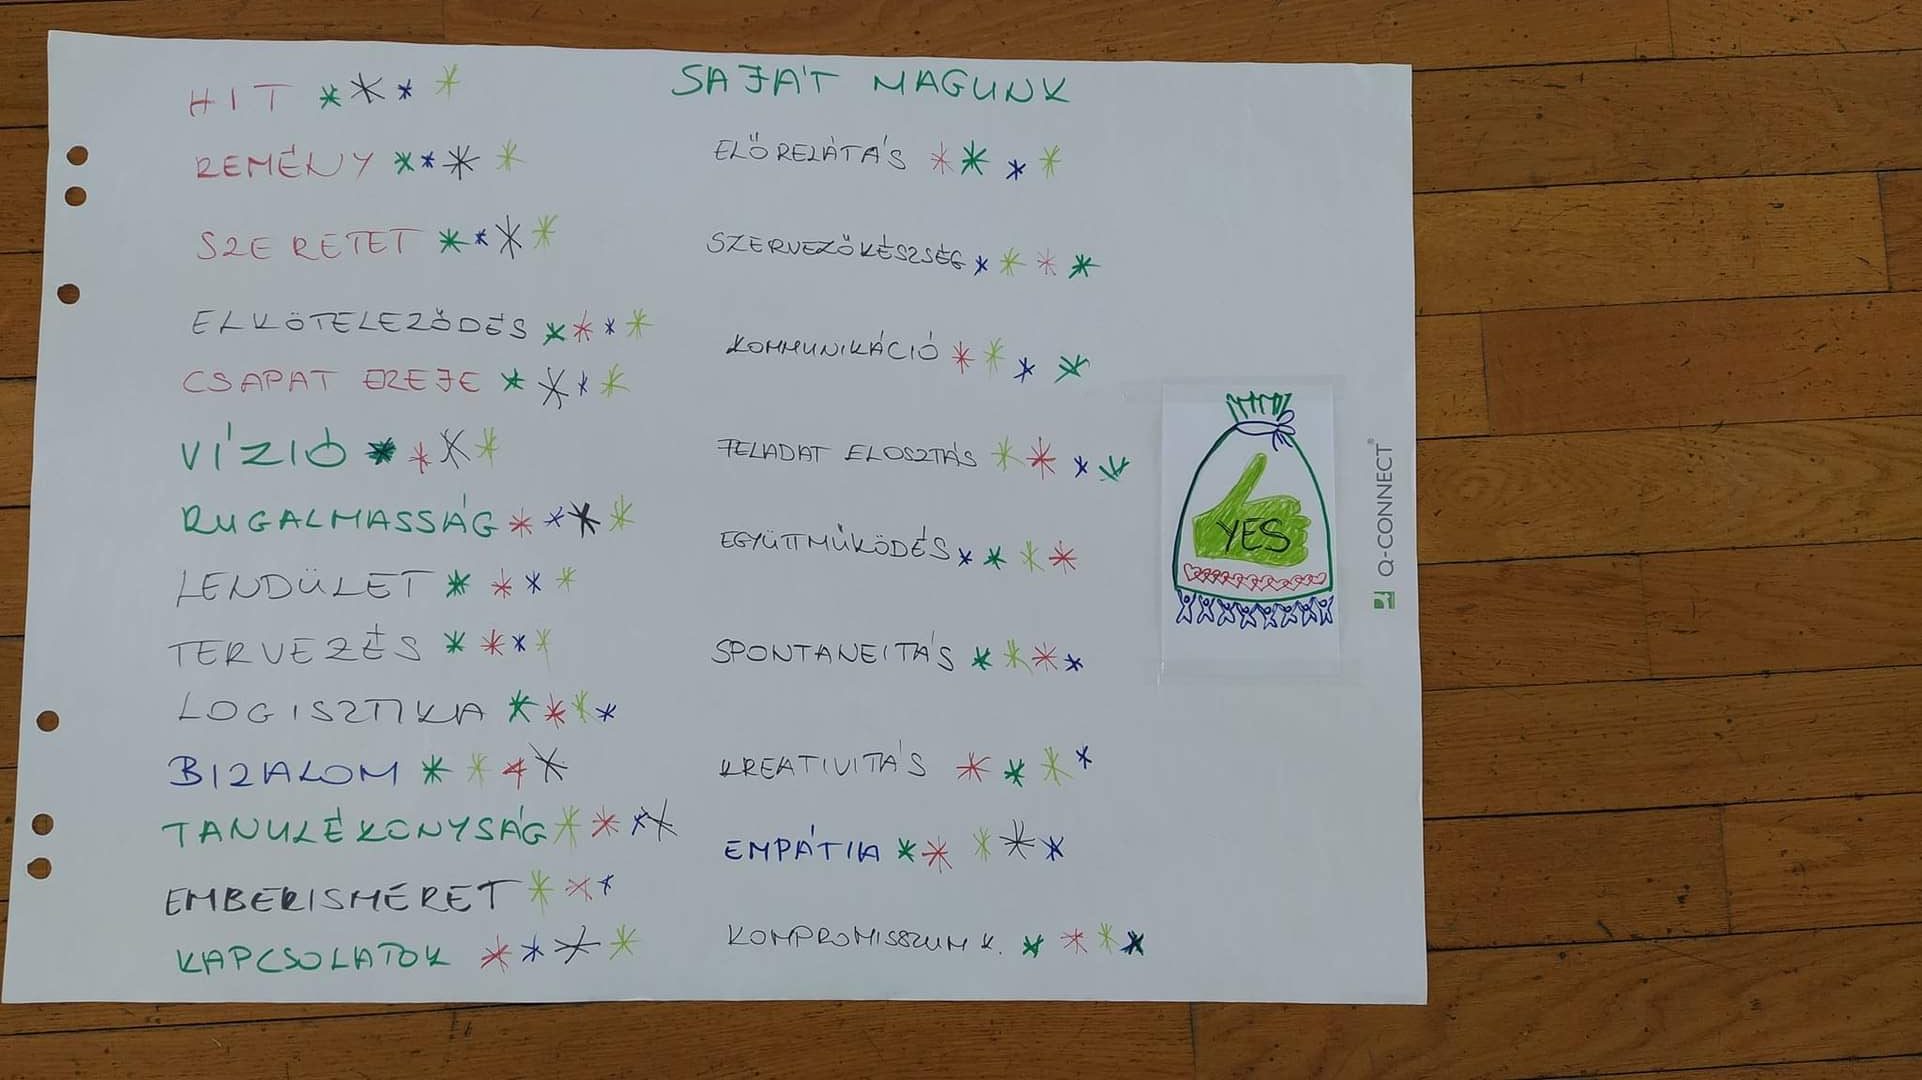 HIT
REMÉNY
SZERETET
ELKÖTELEZŐDÉS
CSAPAT EREJE
VÍZIÓ
RUGALMASSÁG
LENDÜLET
TERVEZÉS
LOGISZTIKA
BIZALOM
TANULÉKONYSÁG
EMBERISMERET
KAPCSOLATOK
SAJÁT MAGUNK
ELŐRELÁTÁS
SZERVEZŐKÉSZSÉG
KOMMUNIKÁCIÓ
FELADAT ELOSZTÁS
EGYÜTTMŰKÖDÉS
SPONTANEITÁS
KREATIVITÁS
EMPÁTIA
KOMPROMISSZUM K.
YES
Q-CONNECT®